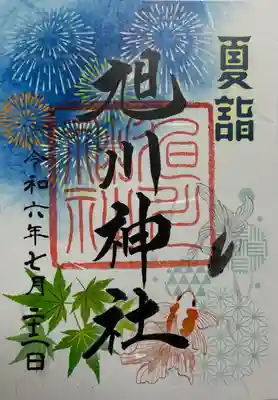 夏詣
旭川神社
令和六年七月二十一日